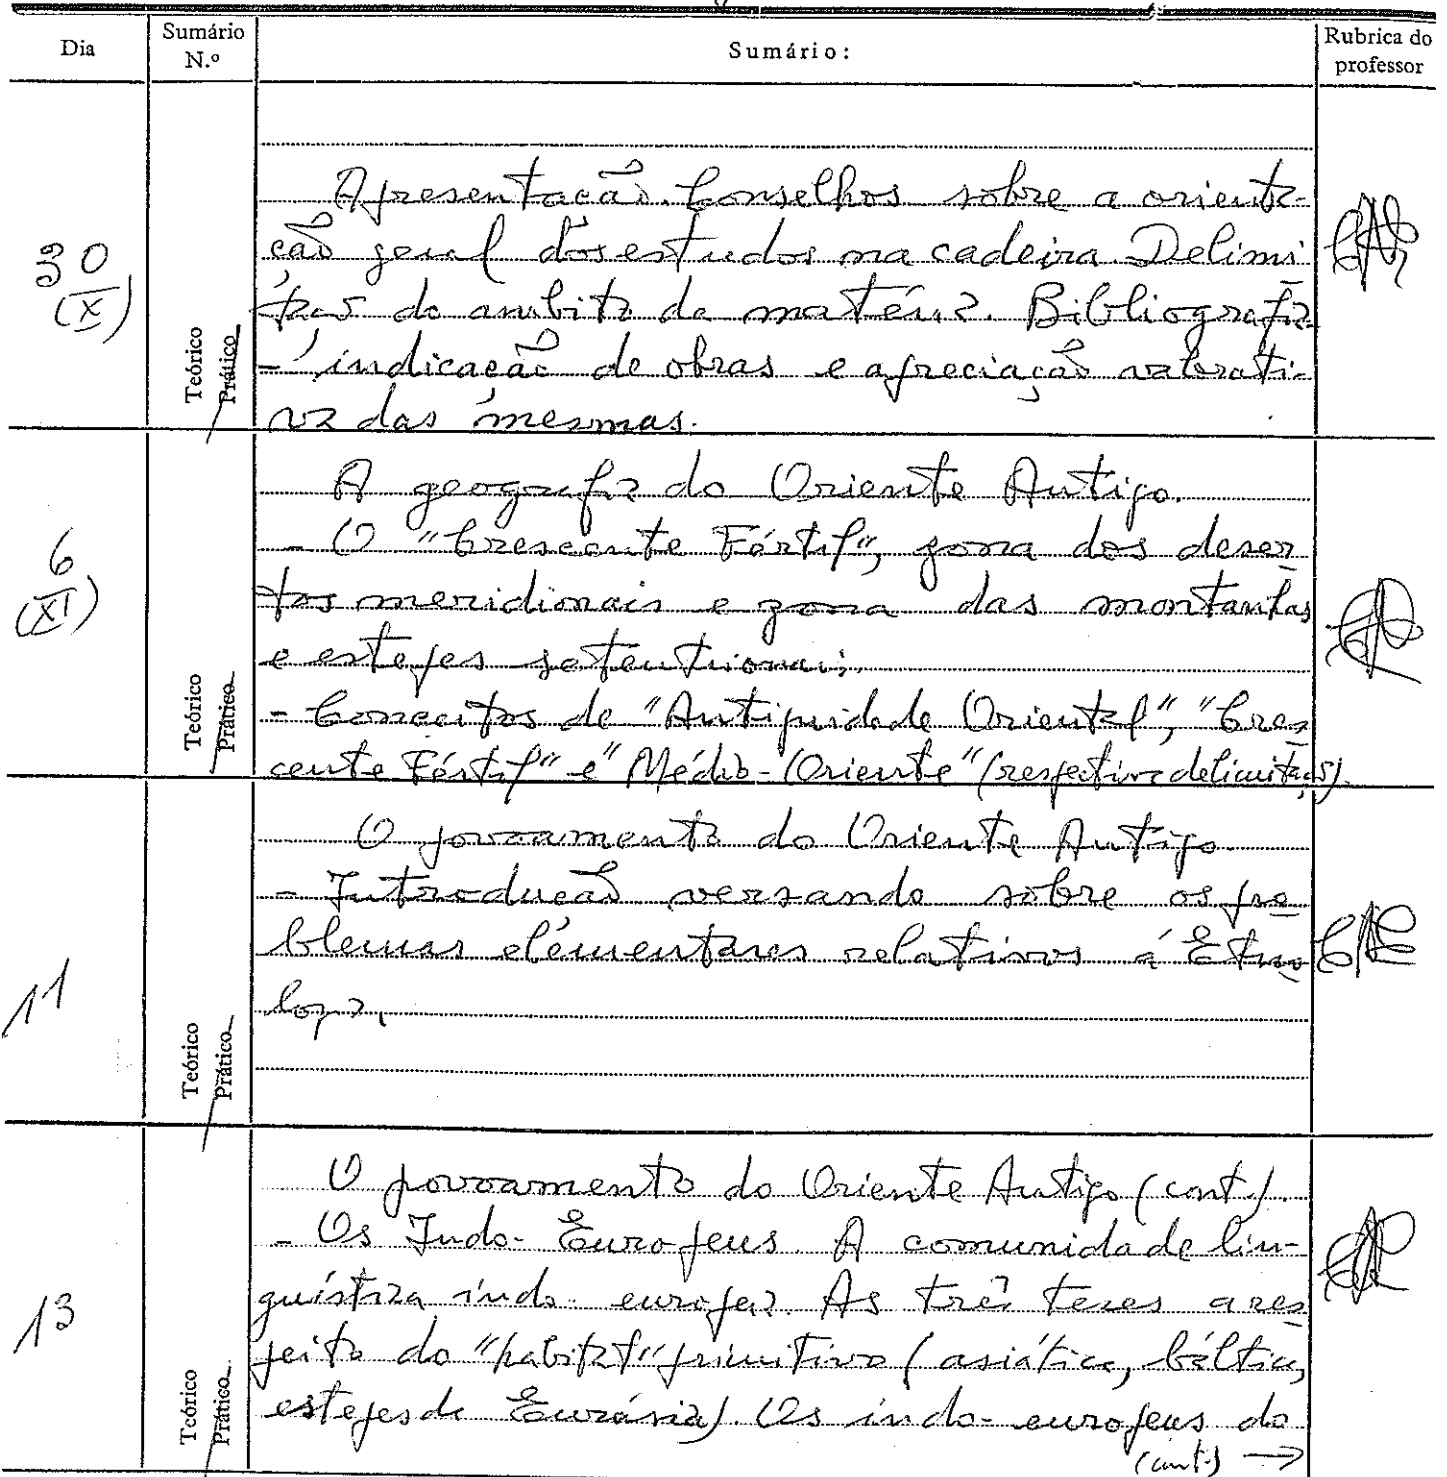 Dia
Sumário N.º
Sumário:
Rubrica do professor
30 (X)
Teórico
Prático
Apresentação. Conselhos sobre a orienta-
ção geral dos estudos na cadeira. Delimi
tação do ambito da matéria. Bibliografia
- indicação de obras e apreciação valorati-
va das mesmas.
6 (XI)
Teórico
Prático
A geografia do Oriente Antigo.
- O "Crescente Fértil", zona dos deser
tos meridionais e zona das montanhas
e estepes setentrionais.
- Conceitos de "Antiguidade Oriental", "Cres
cente Fértil" e "Médio-Oriente" (respectiva delimitação).
11
Teórico
Prático
O povoamento do Oriente Antigo.
- Introdução versando sobre os pro
blemas elementares relativos á Etno
logia.
13
Teórico
Prático
O povoamento do Oriente Antigo (cont.).
- Os Indo-Europeus. A comunidade lin-
guística indo-europeia. As três teses a res
peito do "habitat" primitivo (asiática, báltica,
estepes da Eurásia). Os indo-europeus do
(cont.) →